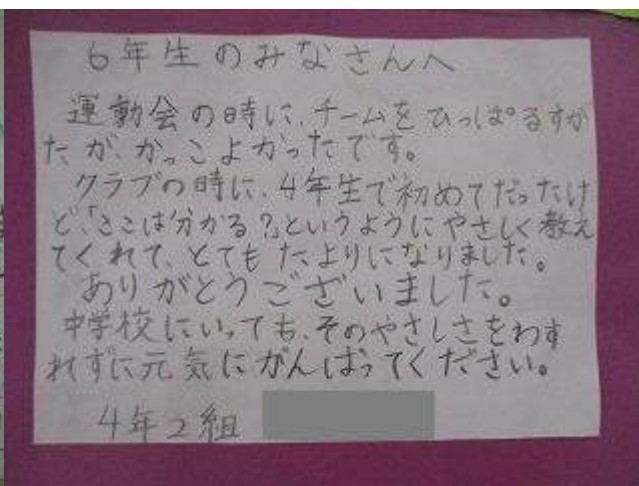 6年生のみなさんへ
運動会の時に、チームをひっぱるすが
たが、かっこよかったです。
クラブの時に、4年生で初めてだったけ
ど、「ここは分かる?」というようにやさしく教え
てくれて、とてもたよりになりました。
ありがとうございました。
中学校にいっても、そのやさしさをわす
れずに元気にがんばってください。
4年2組